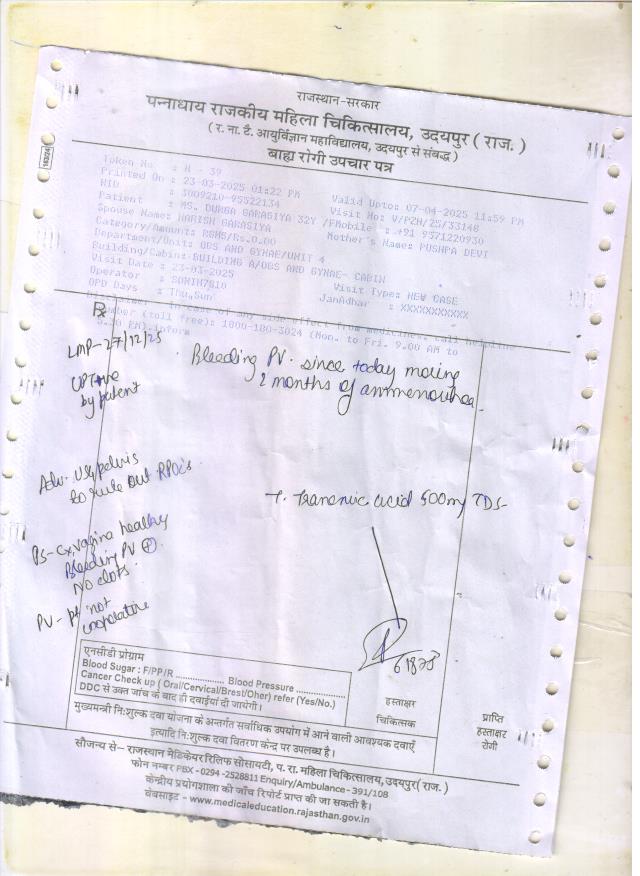 राजस्थान-सरकार
पन्नाधाय राजकीय महिला चिकित्सालय, उदयपुर ( राज. )
( र. ना. टै. आयुर्विज्ञान महाविद्यालय, उदयपुर से संबद्ध )
बाह्य रोगी उपचार पत्र
Token No : H - 39
Printed On : 23-03-2025 01:22 PM Valid Upto: 07-04-2025 11:59 PM
HID : 3009210-95522134 Visit No: V/PZH/25/33148
Patient : MS. DURGA GARASIYA 32Y /F Mobile : +91 9571220930
Spouse Name: HARISH GARASIYA Mother's Name: PUSHPA DEVI
Category/Amount: RGHS/Rs.0.00
Department/Unit: OBS AND GYNAE/UNIT 4
Building/Cabin: BUILDING A/OBS AND GYNAE- CABIN
Visit Date : 23-03-2025 Visit Type: NEW CASE
Operator : SOHIH7810 JanAdhar : XXXXXXXXXXX
OPD Days : Thu,Sun
of any side effect from medicines, call helpline
number (toll free): 1800-180-3024 (Mon. to Fri. 9.00 AM to
5.30 PM).inform
Rx
LMP-27/12/25
Bleeding PV. since today moring
2 months of ammenourhea.
UPT +ve
by patent
Adv. USG pelvis
to rule out RPOCs.
T. Tranemic acid 500mg TDS-
Ps-Cx, vagina healthy
Bleeding PV ⊕
No clots.
PV- pt not
cooperative
61878
एनसीडी प्रोग्राम
Blood Sugar : F/PP/R ................ Blood Pressure ................
Cancer Check up ( Oral/Cervical/Brest/Oher) refer (Yes/No.)
DDC से उक्त जांच के बाद ही दवाईयां दी जायेगी।
हस्ताक्षर
चिकित्सक
प्राप्ति
हस्ताक्षर
रोगी
मुख्यमन्त्री नि:शुल्क दवा योजना के अन्तर्गत सर्वाधिक उपयोग में आने वाली आवश्यक दवाऐं
इत्यादि नि:शुल्क दवा वितरण केन्द्र पर उपलब्ध है।
सौजन्य से– राजस्थान मेडिकेयर रिलिफ सोसायटी, प. रा. महिला चिकित्सालय, उदयपुर( राज. )
फोन नम्बर PBX - 0294 -2528811 Enquiry/Ambulance - 391/108
केन्द्रीय प्रयोगशाला की जाँच रिपोर्ट प्राप्त की जा सकती है।
वेबसाइट - www.medicaleducation.rajasthan.gov.in